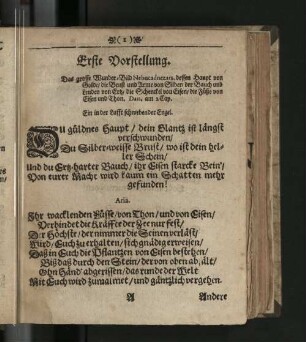 (2)
Erste Vorstellung.
Das grosse Wunder-Bild Nebucadnezars, dessen Haupt von
Golde/ die Brust und Arme von Silber/ der Bauch und
Lenden von Ertz/ die Schenckel von Eisen/ die Füße von
Eisen und Thon. Dan. am 2 Cap.
Ein in der Lufft schwebender Engel.
DU güldnes Haupt/ dein Glantz ist längst
verschwunden/
Du Silber-weisse Brust/ wo ist dein hel-
ler Schein/
Und du Ertz-harter Bauch/ ihr Eisen starcke Bein/
Von eurer Macht wird kaum ein Schatten mehr
gefunden!
Aria.
Ihr wacklenden Füsse/ von Thon/ und von Eisen/
Verbindet die Kräffte der
Der Höchste/ der nimmer die Seinen verläst/
Wird/ Euch zu erhalten/ sich gnädig erweisen/
Daß in Euch die Pflantzen von Eisen bestehen/
Biß daß durch den Stein/ der von oben ab, ält/
Ohn Händ' abgerissen/ das runde der Welt
Mit Euch wird zumalmet/ und gäntzlich vergehen.
A Andere